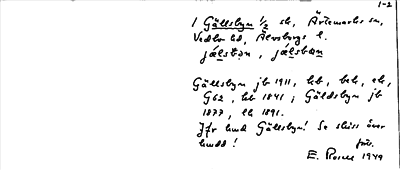 1-2
1 Gällsbyn 1/2 sk, Ärtemarks sn,
Vedbo hd, Älvsborgs l.
jælsbən, jælsbən
Gällsbyn jb 1911, kb, bek, ek,
G62, kb 1841; Gäldsbyn jb
1877, ek 1891.
Jfr hmd Gällsbyn! Se skiss över
hmdd!
E. Rosell 1949